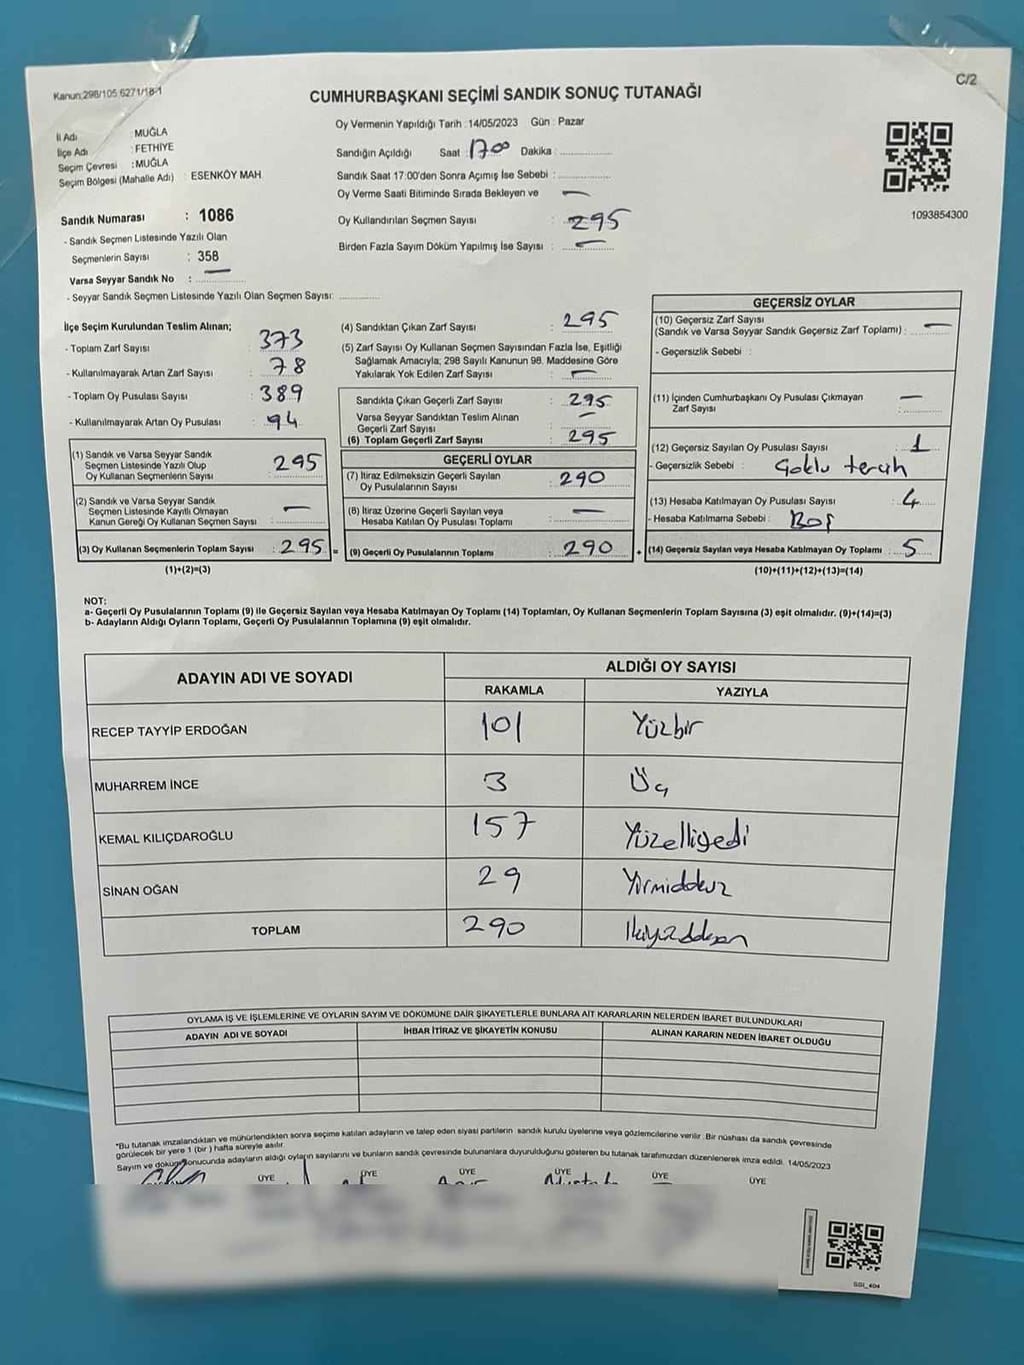 Kanun:298/105 6271/18-1
C/2
CUMHURBAŞKANI SEÇİMİ SANDIK SONUÇ TUTANAĞI
İl Adı : MUĞLA
İlçe Adı : FETHİYE
Seçim Çevresi : MUĞLA
Seçim Bölgesi (Mahalle Adı) : ESENKÖY MAH.
Sandık Numarası : 1086
- Sandık Seçmen Listesinde Yazılı Olan
Seçmenlerin Sayısı : 358
Varsa Seyyar Sandık No : —
- Seyyar Sandık Seçmen Listesinde Yazılı Olan Seçmen Sayısı:
Oy Vermenin Yapıldığı Tarih : 14/05/2023 Gün : Pazar
Sandığın Açıldığı Saat : 17 00 Dakika :
Sandık Saat 17:00'den Sonra Açımış İse Sebebi :
Oy Verme Saati Bitiminde Sırada Bekleyen ve —
Oy Kullandırılan Seçmen Sayısı : 295
Birden Fazla Sayım Döküm Yapılmış İse Sayısı : —
1093854300
İlçe Seçim Kurulundan Teslim Alınan;
- Toplam Zarf Sayısı : 373
- Kullanılmayarak Artan Zarf Sayısı : 78
- Toplam Oy Pusulası Sayısı : 389
- Kullanılmayarak Artan Oy Pusulası : 94
(1) Sandık ve Varsa Seyyar Sandık
Seçmen Listesinde Yazılı Olup
Oy Kullanan Seçmenlerin Sayısı : 295
(2) Sandık ve Varsa Seyyar Sandık
Seçmen Listesinde Kayıtlı Olmayan
Kanun Gereği Oy Kullanan Seçmen Sayısı : —
(3) Oy Kullanan Seçmenlerin Toplam Sayısı : 295 =
(1)+(2)=(3)
(4) Sandıktan Çıkan Zarf Sayısı : 295
(5) Zarf Sayısı Oy Kullanan Seçmen Sayısından Fazla İse, Eşitliği
Sağlamak Amacıyla; 298 Sayılı Kanunun 98. Maddesine Göre
Yakılarak Yok Edilen Zarf Sayısı : —
Sandıkta Çıkan Geçerli Zarf Sayısı : 295
Varsa Seyyar Sandıktan Teslim Alınan
Geçerli Zarf Sayısı : —
(6) Toplam Geçerli Zarf Sayısı : 295
GEÇERLİ OYLAR
(7) İtiraz Edilmeksizin Geçerli Sayılan
Oy Pusulalarının Sayısı : 290
(8) İtiraz Üzerine Geçerli Sayılan veya
Hesaba Katılan Oy Pusulası Toplamı : —
(9) Geçerli Oy Pusulalarının Toplamı : 290 +
GEÇERSİZ OYLAR
(10) Geçersiz Zarf Sayısı
(Sandık ve Varsa Seyyar Sandık Geçersiz Zarf Toplamı) : —
- Geçersizlik Sebebi :
(11) İçinden Cumhurbaşkanı Oy Pusulası Çıkmayan
Zarf Sayısı : —
(12) Geçersiz Sayılan Oy Pusulası Sayısı : 1
- Geçersizlik Sebebi : Çoklu tercih
(13) Hesaba Katılmayan Oy Pusulası Sayısı : 4
- Hesaba Katılmama Sebebi : Boş
(14) Geçersiz Sayılan veya Hesaba Katılmayan Oy Toplamı : 5
(10)+(11)+(12)+(13)=(14)
NOT:
a- Geçerli Oy Pusulalarının Toplamı (9) ile Geçersiz Sayılan veya Hesaba Katılmayan Oy Toplamı (14) Toplamları, Oy Kullanan Seçmenlerin Toplam Sayısına (3) eşit olmalıdır. (9)+(14)=(3)
b- Adayların Aldığı Oyların Toplamı, Geçerli Oy Pusulalarının Toplamına (9) eşit olmalıdır.
ADAYIN ADI VE SOYADI
ALDIĞI OY SAYISI
RAKAMLA YAZIYLA
RECEP TAYYİP ERDOĞAN 101 Yüzbir
MUHARREM İNCE 3 Üç
KEMAL KILIÇDAROĞLU 157 Yüzelliyedi
SİNAN OĞAN 29 Yirmidokuz
TOPLAM 290 İkiyüzdoksan
OYLAMA İŞ VE İŞLEMLERİNE VE OYLARIN SAYIM VE DÖKÜMÜNE DAİR ŞİKAYETLERLE BUNLARA AİT KARARLARIN NELERDEN İBARET BULUNDUKLARI
ADAYIN ADI VE SOYADI İHBAR İTİRAZ VE ŞİKAYETİN KONUSU ALINAN KARARIN NEDEN İBARET OLDUĞU
*Bu tutanak imzalandıktan ve mühürlendikten sonra seçime katılan adayların ve talep eden siyasi partilerin sandık kurulu üyelerine veya gözlemcilerine verilir. Bir nüshası da sandık çevresinde
görülecek bir yere 1 (bir) hafta süreyle asılır.
Sayım ve döküm sonucunda adayların aldığı oyların sayılarını ve bunların sandık çevresinde bulunanlara duyurulduğunu gösteren bu tutanak tarafımızdan düzenlenerek imza edildi. 14/05/2023
ÜYE ÜYE ÜYE ÜYE ÜYE ÜYE
SGI_404